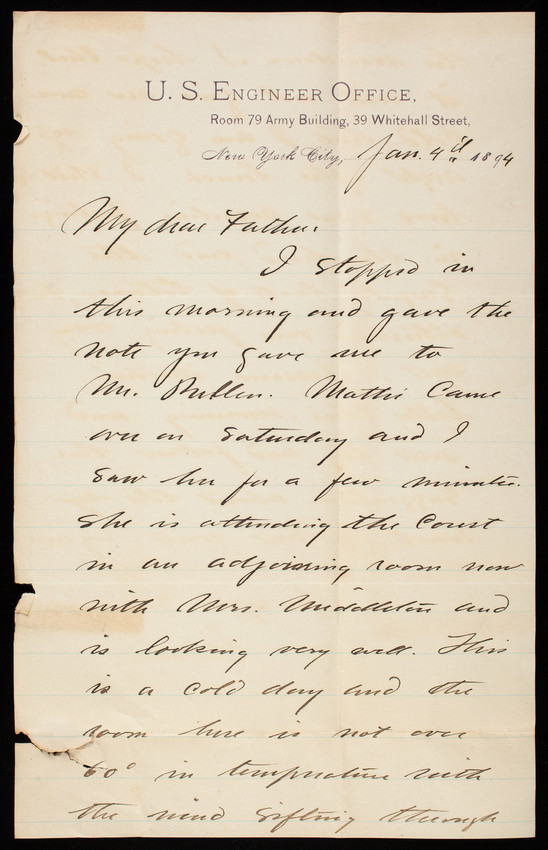 U. S. ENGINEER OFFICE,
Room 79 Army Building, 39 Whitehall Street,
New York City, Jan. 4th 1894
My dear Father.
I stopped in
this morning and gave the
note you gave me to
Mr. Mattie came
over on Saturday and I
saw her for a few minutes.
She is attending the Court
in an adjoining room now
with Mrs. Middleton and
is looking very well. This
is a cold day and the
room here is not over
60° in temperature with
the wind sifting through